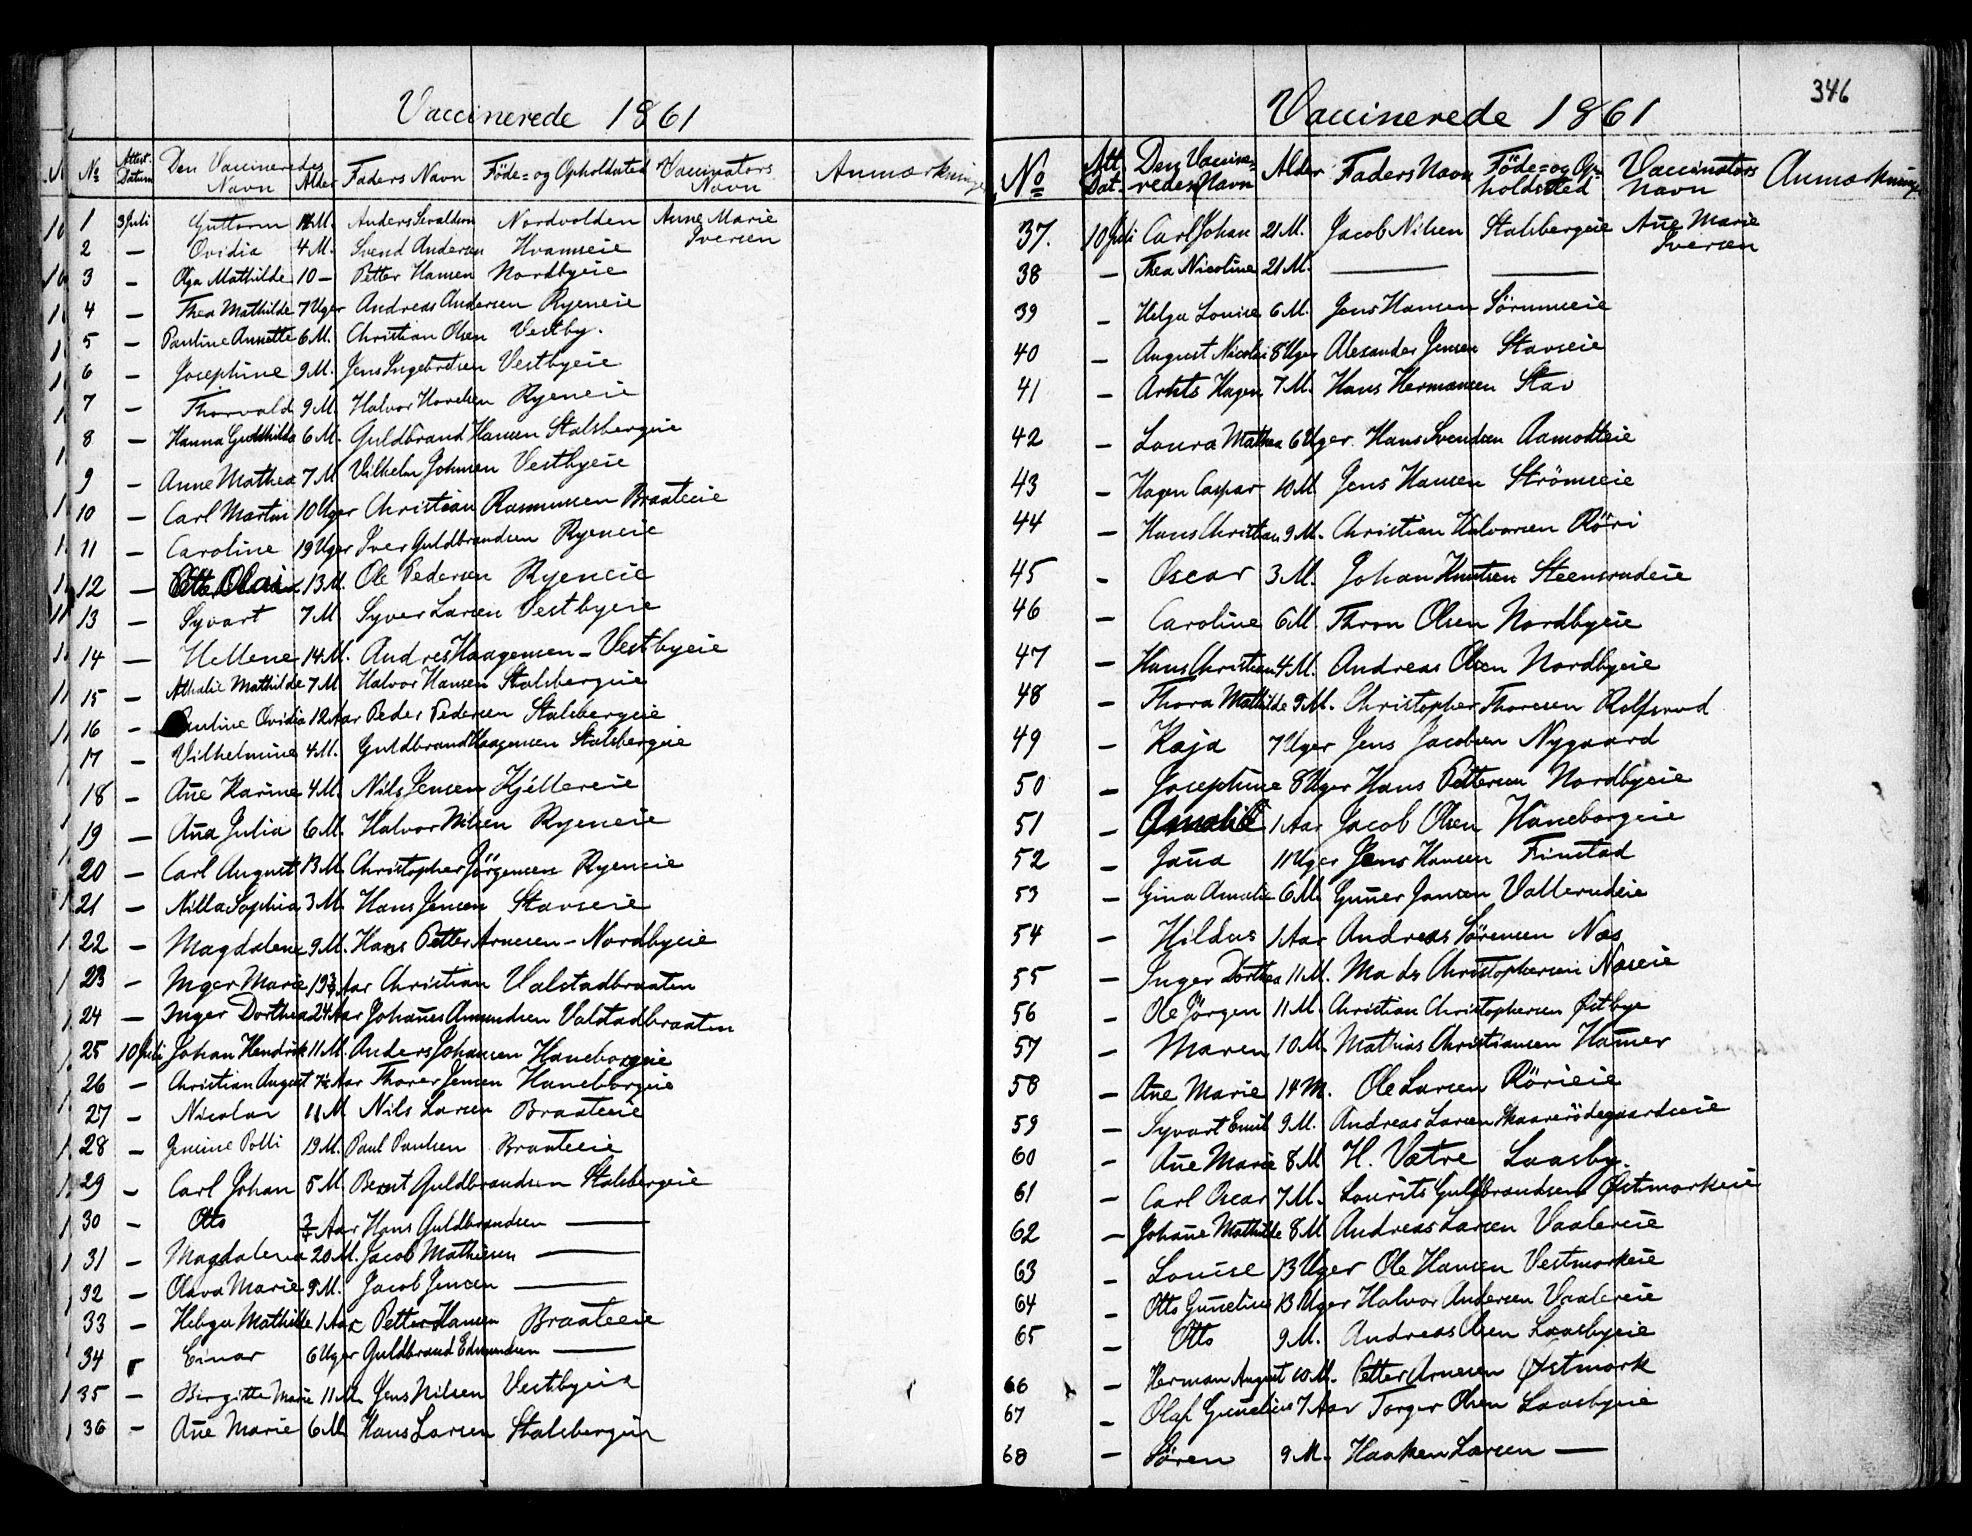 Vaccinerede 1861
No Attest. Datum Den Vaccineredes Navn Alder Faders Navn Föde= og Opholdssted Vaccinators Navn Anmærkninger
1 3 Juli Guttorm M. Anders Nordvolden Anne Marie Iversen
2 — Ovidia 4 M. Svend Andersen Hvamseie
3 — Olga Mathilde 10 — Petter Hansen Nordbyeie
4 — Thea Mathilde 7 Uger Andreas Andersen Ryeneie
5 — Pauline Annette 6 M. Christian Olsen Vestby.
6 — Josephine 9 M. Jens Ingebretsen Vestbyeie
7 — Thorvald 9 M. Halvor Ryeneie
8 — Hanna 6 M. Guldbrand Hansen Stalsbergeie
9 — Anne Mathea 7 M Vilhelm Johnsen Vestbyeie
10 — Carl Martin 10 Uger Christian Rasmussen Braateeie
11 — Caroline 19 Uger Iver Guldbrandsen Ryeneie
12 — Olai 13 M. Ole Pedersen Ryeneie
13 — Syvart 7 M. Syver Larsen Vestbyeie
14 — Hellene 14 M. Andres Haagensen — Vestbyeie
15 — Athalie Mathilde 7 M. Halvor Hansen Stalsbergeie
16 — Pauline Ovidia 12 Aar Peder Pedersen Stalsbergeie
17 — Vilhelmine 4 M. Guldbrand Haagensen Stalsbergeie
18 — Ane Karine 4 M. Nils Jensen Kjellereie
19 — Ana Julia 6 M. Halvor Nilsen Ryeneie
20 — Carl August 13 M. Christopher Jörgensen Ryeneie
21 — Nilla Sophia 3 M. Hans Jensen Stavseie
22 — Magdalene 9 M. Hans Petter Arnesen — Nordbyeie
23 — Inger Marie Aar Christian Valstadbraaten
24 — Inger Dorthea 24 Aar Johanes Amundsen Valstadbraaten
25 10 Juli Johan Hendrik 11 M. Anders Johansen Haneborgeie
26 — Christian August Aar Thorer Jensen Haneborgeie
27 — Nicolai 11 M Nils Larsen Braateeie
28 — 19 M. Paul Paulsen Braateeie
29 — Carl Johan 5 M. Bernt Guldbrandsen Stalsbergeie
30 — Otto Aar Hans Guldbrandsen —
31 — Magdalena 20 M. Jacob Mathiesen —
32 — Olava Marie 9 M. Jacob Jensen —
33 — Helga Mathilde 1 Aar Petter Hansen Braateeie
34 — Einar 6 Uger Guldbrand Edmundsen —
35 — Birgitte Marie 11 M. Jens Nilsen Vestbyeie
36 — Ane Marie 6 M. Hans Larsen Stalsbergeie
346
Vaccinerede 1861
No Att. Dat. Den Vaccineredes Navn Alder Faders Navn Föde= og Opholdssted Vaccinators Navn Anmærkninger
37. 10 Juli Carl Johan 21 M. Jacob Nilsen Stalsbergeie Ane Marie Iversen
38 — Thea Nicoline 21 M. — —
39 — Helga Louise 6 M. Jens Hansen Sörumseie
40 — August Nicolai 8 Uger Alexander Jensen Stavseie
41 — Hagen 7 M. Hans Hermansen Stav
42 — Laura Mathea 6 Uger. Hans Svendsen Aamodteie
43 — Hagen Caspar 10 M. Jens Hansen Strömseie
44 — Hans Christian 9 M. Christian Halvorsen Röiri
45 — Oscar 3 M. Johan Knutsen Steensrudeie
46 — Caroline 6 M. Thron Olsen Nordbyeie
47 — Hans Christian 4 M. Andreas Olsen Nordbyeie
48 — Thora Mathilde 9 M. Christopher Thoresen Rolfsrud
49 — Kaja 7 Uger Jens Jacobsen Nygaard
50 — Josephine 8 Uger Hans Pettersen Nordbyeie
51 — Amalie 1 Aar Jacob Olsen Haneborgeie
52 — Jana 11 Uger Jens Hansen Finstad
53 — Gina Amalie 6 M. Guner Jansen Vallerudeie
54 — Hildus 1 Aar Andreas Sörensen Næs
55 — Inger Dorthea 11 M. Mads Christophersen Næseie
56 — Ole Jörgen 11 M. Christian Christophersen Østbye
57 — Maren 10 M. Mathias Christiansen Hamer
58 — Ane Marie 14 M. Ole Larsen Rörieie
59 — Syvart Emil 9 M. Andreas Larsen Skaarerödegaardseie
60 — Ane Marie 8 M H. Vætre Laasby.
61 — Carl Oscar 7 M. Laurits Guldbrandsen Østmarkeie
62 — Johane Mathilde 8 M. Andreas Larsen Vaalereie
63 — Louise 13 Uger Ole Hansen Vestmarkeie
64 — Otto Gunelius 13 Uger Halvor Andersen Vaalereie
65 — Otto 9 M. Andreas Olsen Laasbyeie
66 — Herman August 10 M. Petter Arnesen Østmark
67 — Olaf Gunelius 7 Aar Torger Olsen Laasbyeie
68 — Sören 9 M. Haaken Larsen —